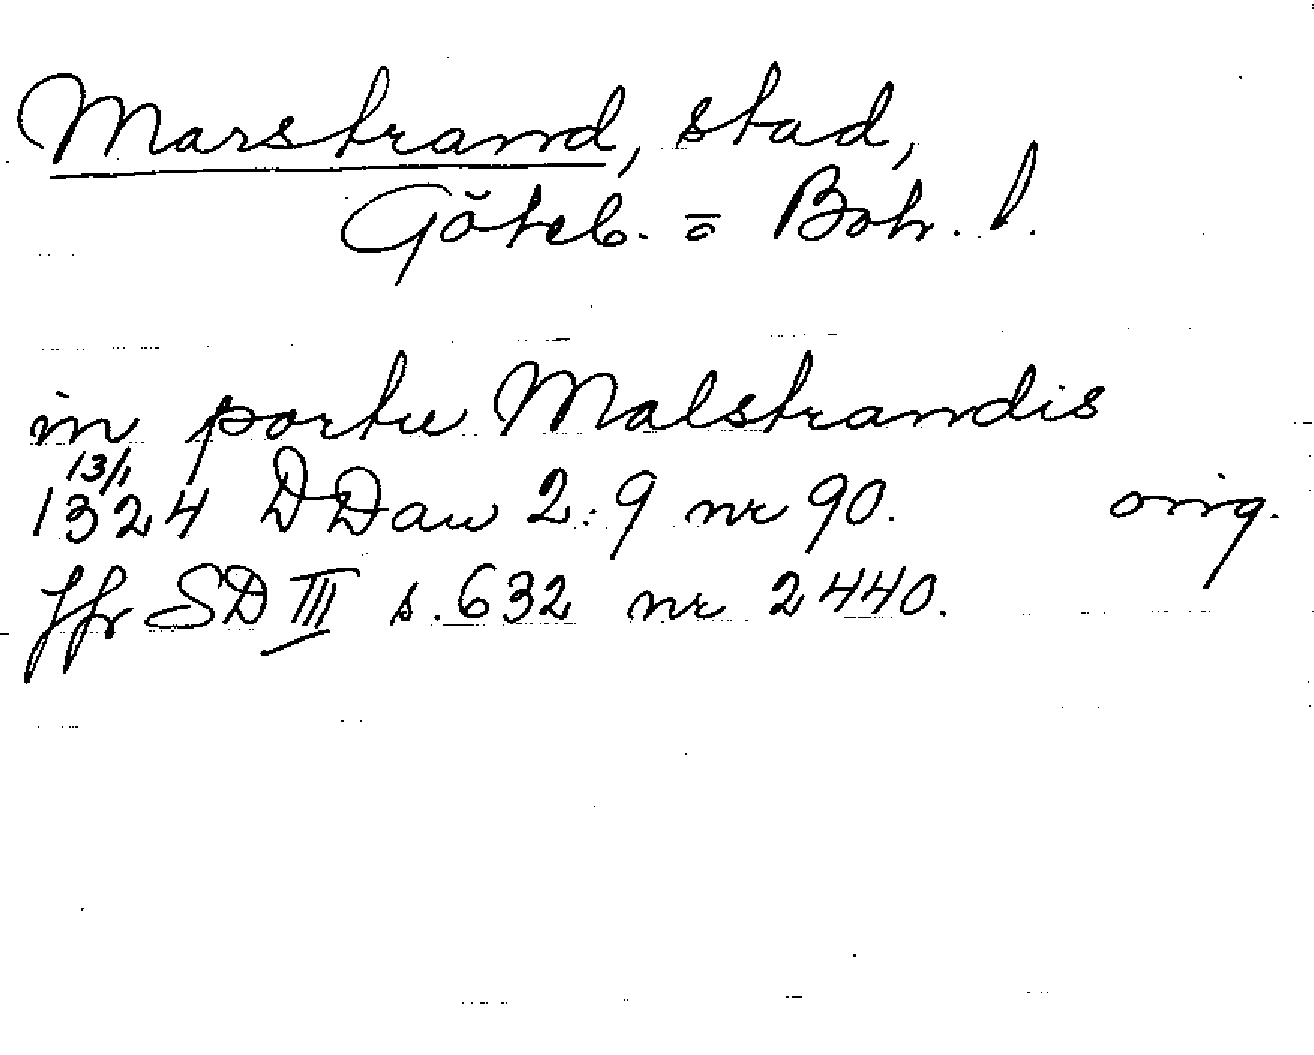 Marstrand, stad,
Göteb. o Boh. l.
in portu Malstrandis
13/1
1324 DDan 2:9 nr 90. orig.
Jfr SD III s. 632 nr 2440.